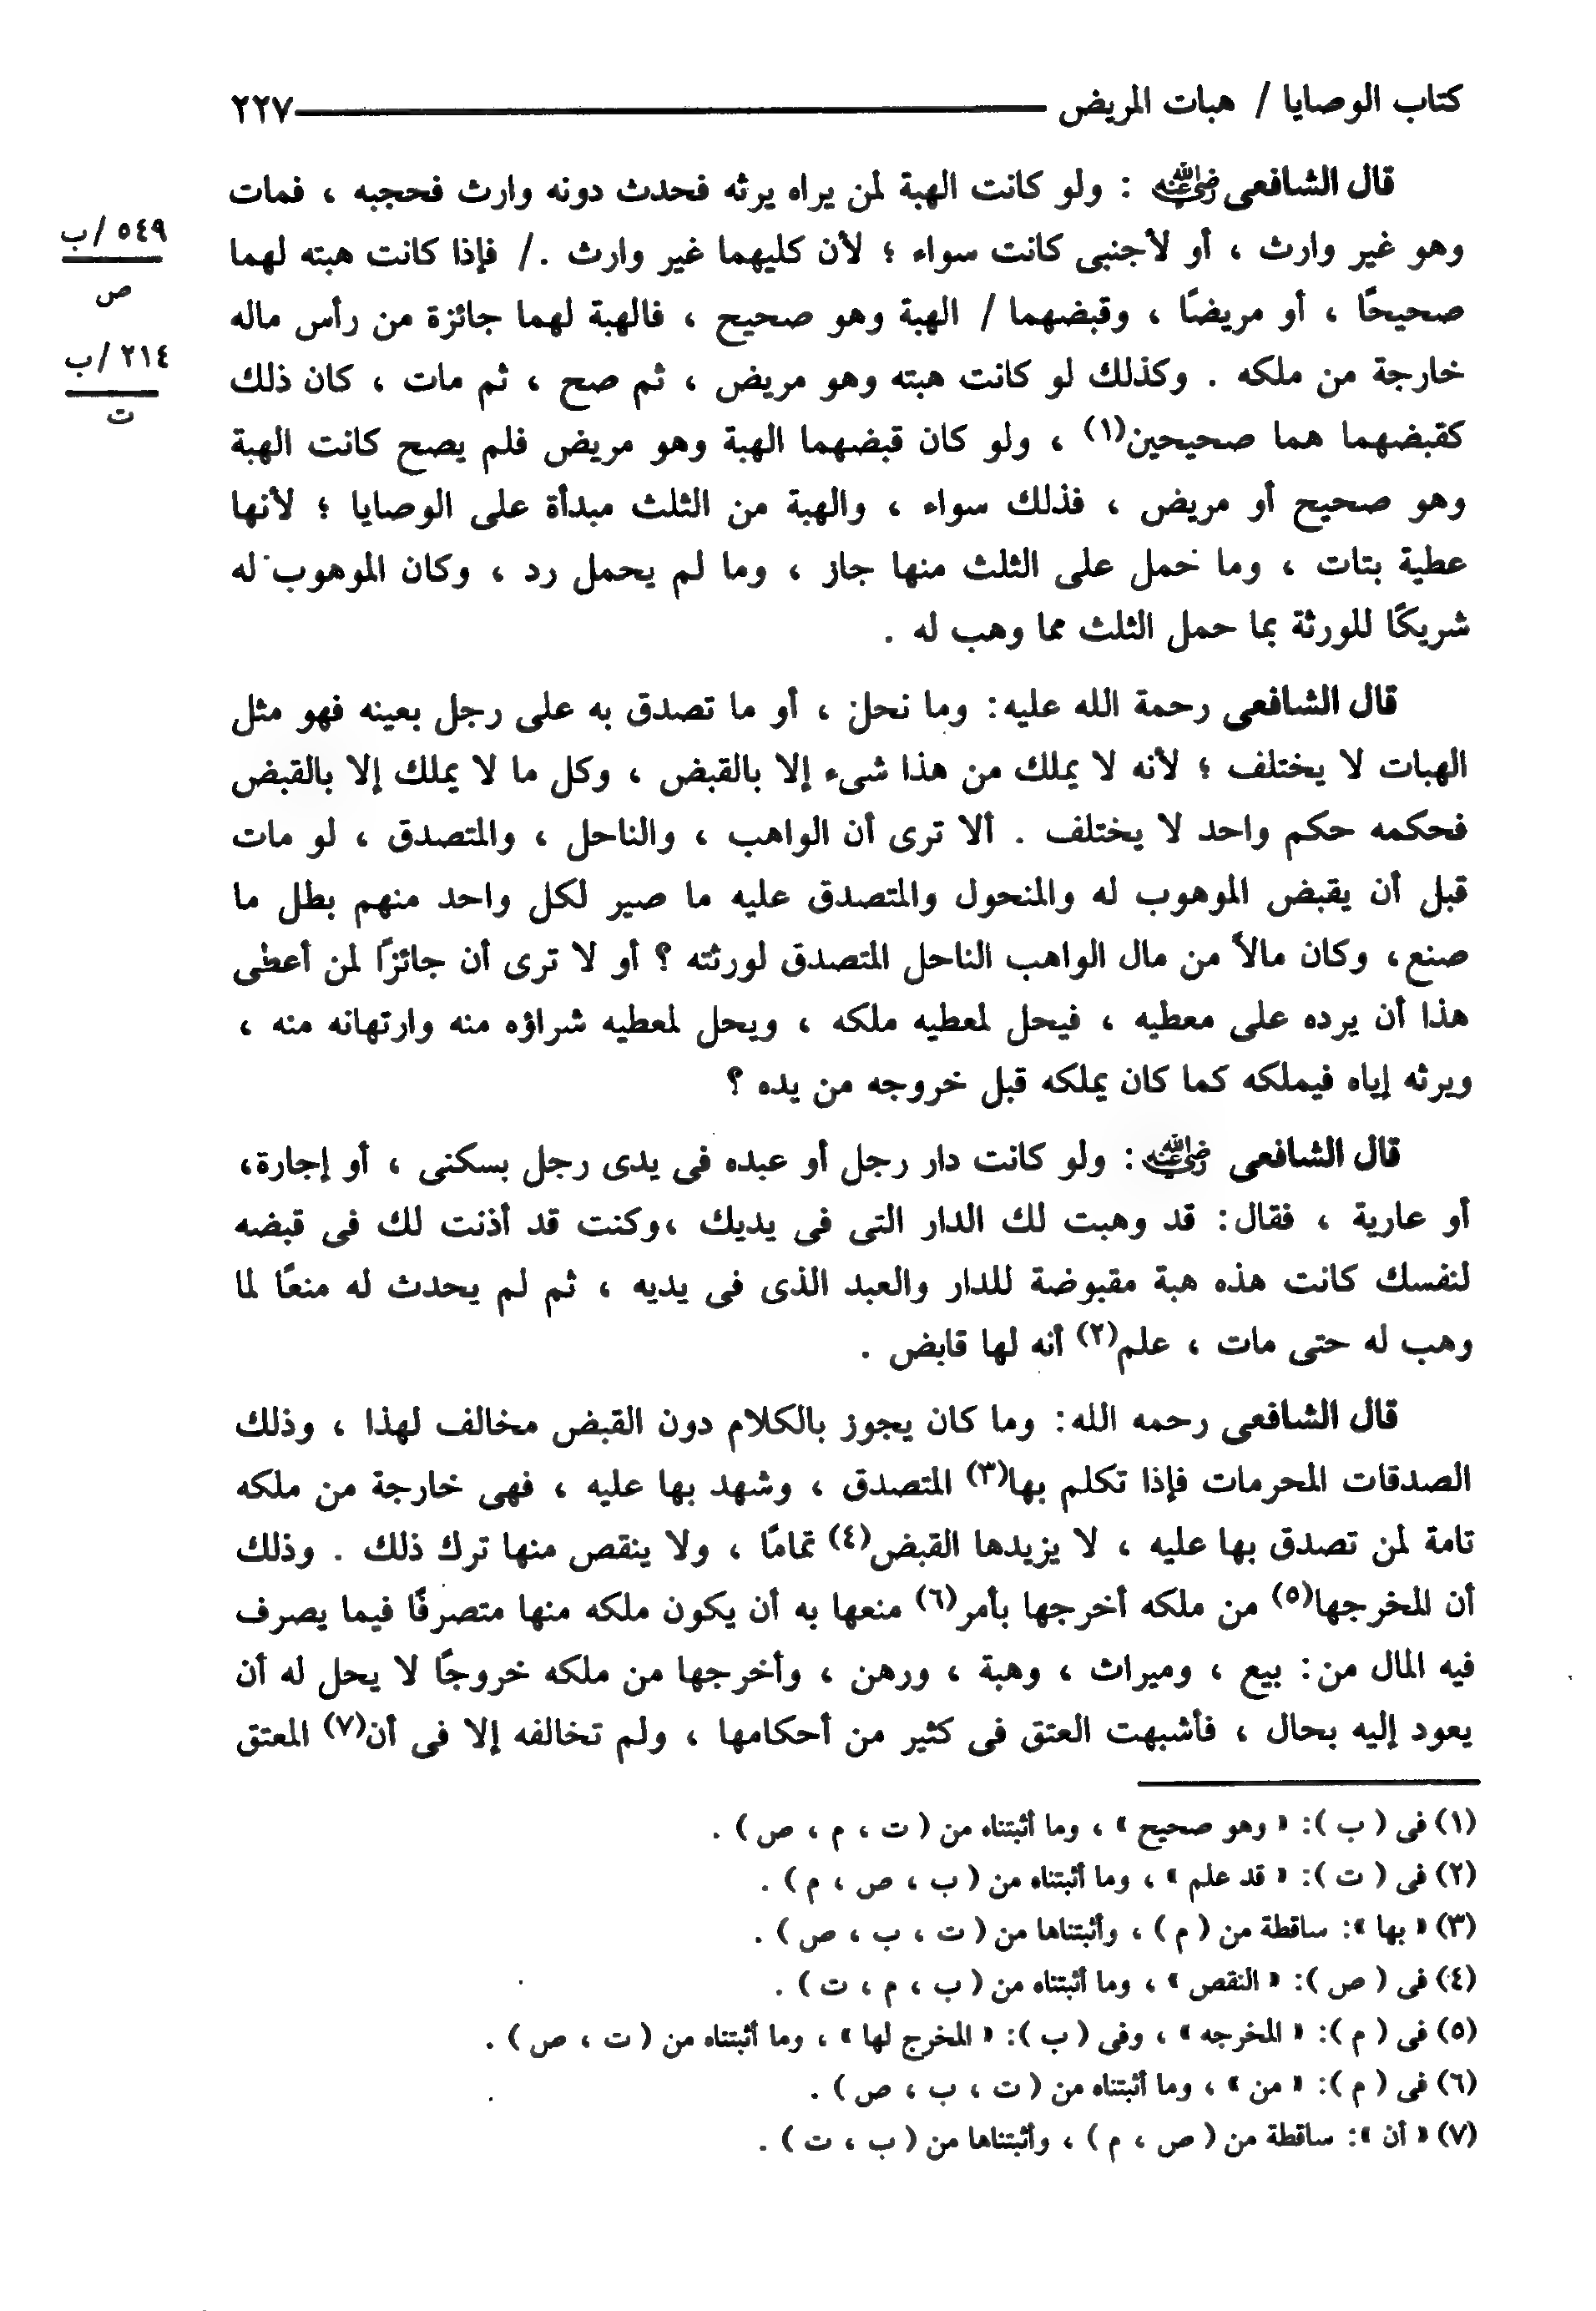 كتاب الوصايا / هبات المريض ٢٢٧
قال الشافعى رضي الله عنه : ولو كانت الهبة لمن يراه يرثه فحدث دونه وارث فحجبه ، فمات
وهو غير وارث ، أو لأجنبى كانت سواء ؛ لأن كليهما غير وارث ./ فإذا كانت هبته لهما
٥٤٩ /ب
ص
صحيحًا ، أو مريضًا ، وقبضهما / الهبة وهو صحيح ، فالهبة لهما جائزة من رأس ماله
٢١٤ /ب
ت
خارجة من ملكه . وكذلك لو كانت هبته وهو مريض ، ثم صح ، ثم مات ، كان ذلك
كقبضهما هما صحيحين(١) ، ولو كان قبضهما الهبة وهو مريض فلم يصح كانت الهبة
وهو صحيح أو مريض ، فذلك سواء ، والهبة من الثلث مبدأة على الوصايا ؛ لأنها
عطية بتات ، وما حمل على الثلث منها جاز ، وما لم يحمل رد ، وكان الموهوب له
شريكًا للورثة بما حمل الثلث مما وهب له .
قال الشافعى رحمة الله عليه: وما نحل ، أو ما تصدق به على رجل بعينه فهو مثل
الهبات لا يختلف ؛ لأنه لا يملك من هذا شىء إلا بالقبض ، وكل ما لا يملك إلا بالقبض
فحكمه حكم واحد لا يختلف . ألا ترى أن الواهب ، والناحل ، والمتصدق ، لو مات
قبل أن يقبض الموهوب له والمنحول والمتصدق عليه ما صير لكل واحد منهم بطل ما
صنع، وكان مالاً من مال الواهب الناحل المتصدق لورثته ؟ أو لا ترى أن جائزًا لمن أعطى
هذا أن يرده على معطيه ، فيحل لمعطيه ملكه ، ويحل لمعطيه شراؤه منه وارتهانه منه ،
ويرثه إياه فيملكه كما كان يملكه قبل خروجه من يده ؟
قال الشافعى رضي الله عنه : ولو كانت دار رجل أو عبده فى يدى رجل بسكنى ، أو إجارة،
أو عارية ، فقال: قد وهبت لك الدار التى فى يديك ،وكنت قد أذنت لك فى قبضه
لنفسك كانت هذه هبة مقبوضة للدار والعبد الذى فى يديه ، ثم لم يحدث له منعًا لما
وهب له حتى مات ، علم(٢) أنه لها قابض .
قال الشافعى رحمه الله: وما كان يجوز بالكلام دون القبض مخالف لهذا ، وذلك
الصدقات المحرمات فإذا تكلم بها(٣) المتصدق ، وشهد بها عليه ، فهى خارجة من ملكه
تامة لمن تصدق بها عليه ، لا يزيدها القبض(٤) تمامًا ، ولا ينقص منها ترك ذلك . وذلك
أن المخرجها(٥) من ملكه أخرجها بأمر(٦) منعها به أن يكون ملكه منها متصرفًا فيما يصرف
فيه المال من: بيع ، وميراث ، وهبة ، ورهن ، وأخرجها من ملكه خروجًا لا يحل له أن
يعود إليه بحال ، فأشبهت العتق فى كثير من أحكامها ، ولم تخالفه إلا فى أن(٧) المعتق
(١) فى ( ب ): « وهو صحيح » ، وما أثبتناه من ( ت ، م ، ص ) .
(٢) فى ( ت ): « قد علم » ، وما أثبتناه من ( ب ، ص ، م ) .
(٣) « بها »: ساقطة من ( م ) ، وأثبتناها من ( ت ، ب ، ص ) .
(٤) فى ( ص ): « النقص » ، وما أثبتناه من ( ب ، م ، ت ) .
(٥) فى ( م ): « المخرجه » ، وفى ( ب ): « المخرج لها » ، وما أثبتناه من ( ت ، ص ) .
(٦) فى ( م ): « من » ، وما أثبتناه من ( ت ، ب ، ص ) .
(٧) « أن »: ساقطة من ( ص ، م ) ، وأثبتناها من ( ب ، ت ) .